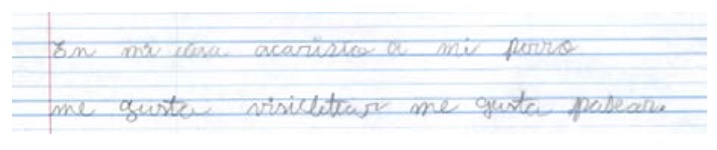 En mi casa acarisio a mi perro
me gusta visicletear me gusta pasear.